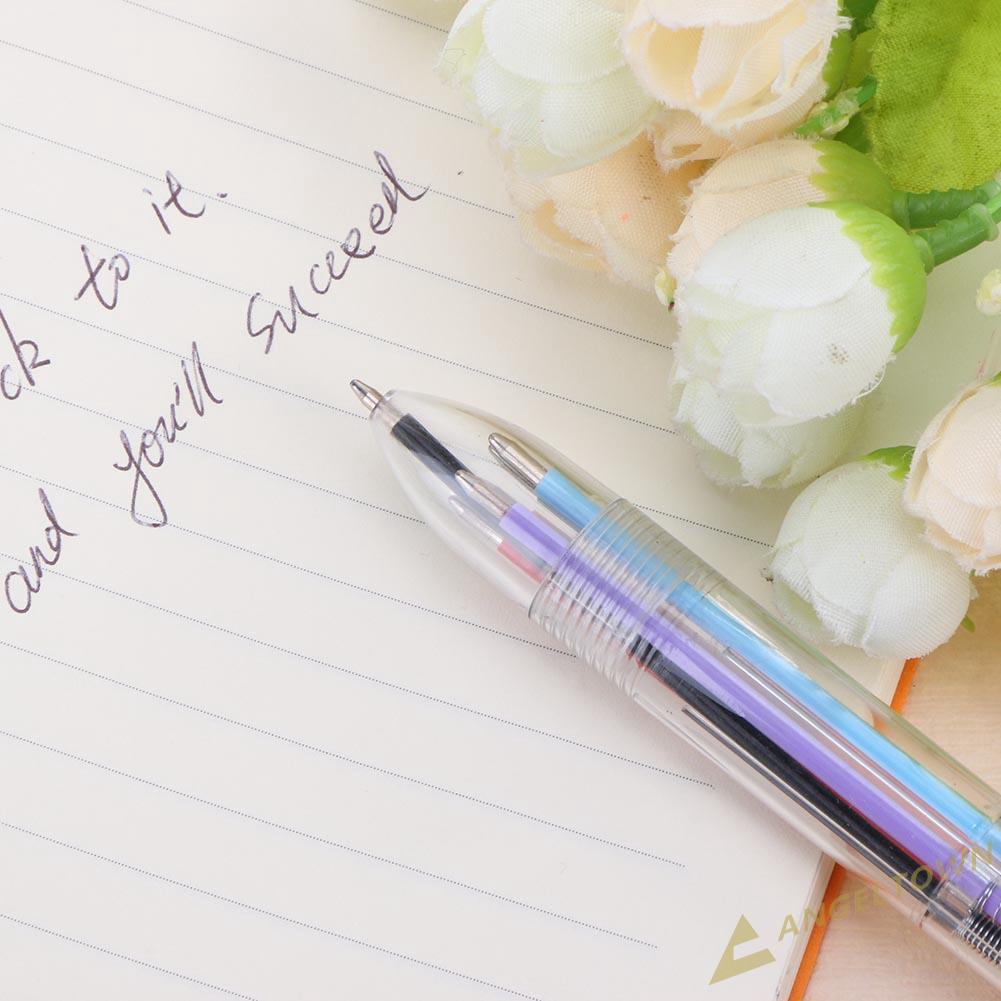 ck to it.
and you'll succeed
ANGELTOWN